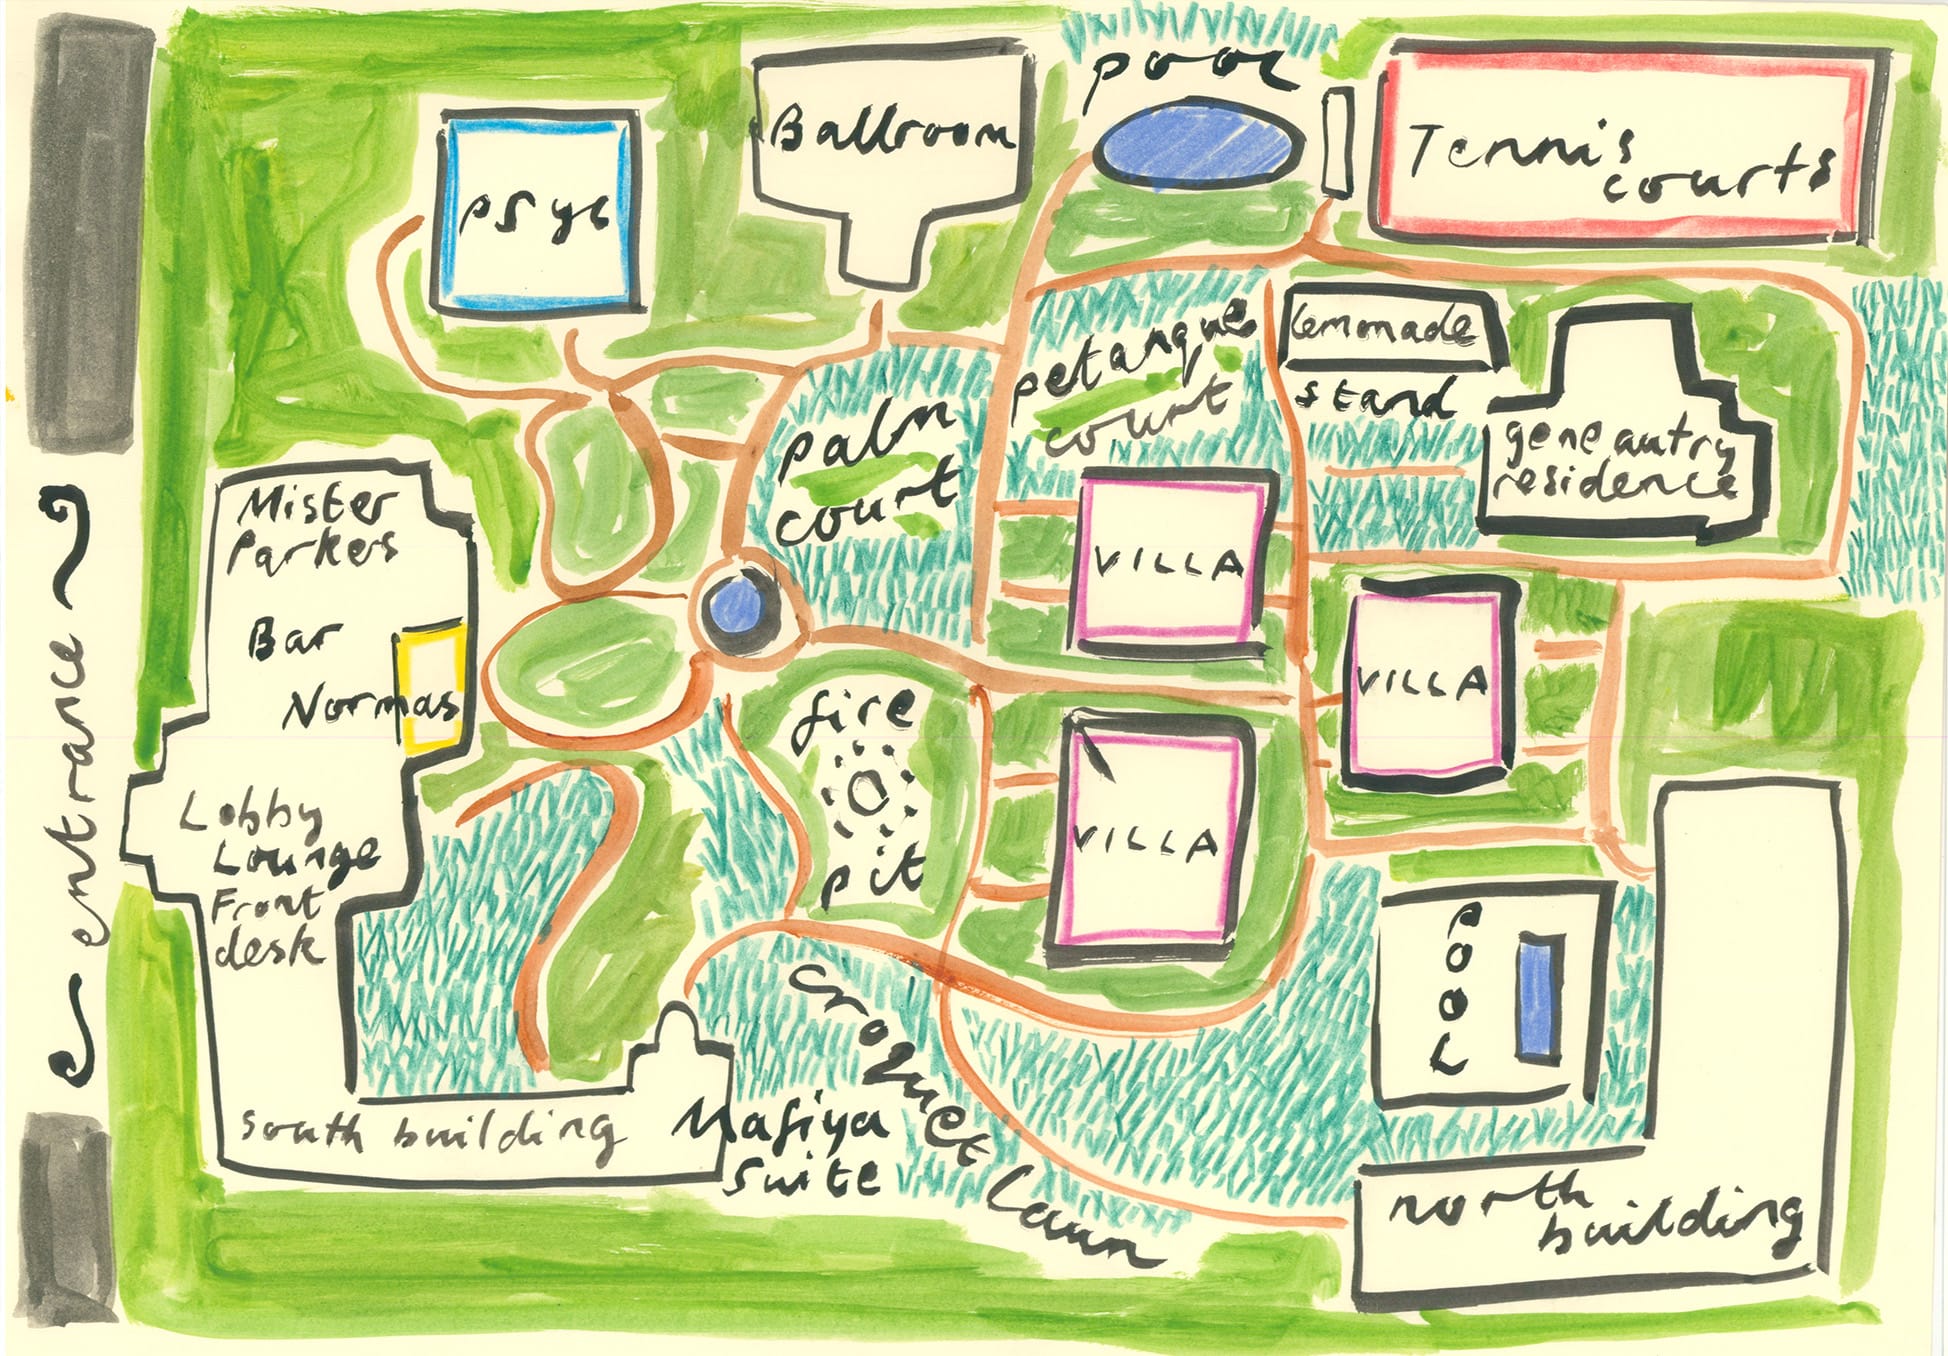 pool
Tennis
courts
Ballroom
PSYC
lemonade
stand
petanque
court
gene autry
residence
palm
court
Mister
Parkers
Bar
Normas
VILLA
VILLA
VILLA
fire
pit
entrance
Lobby
Lounge
Front
desk
POOL
croquet lawn
south building
Mafiya
suite
north
building